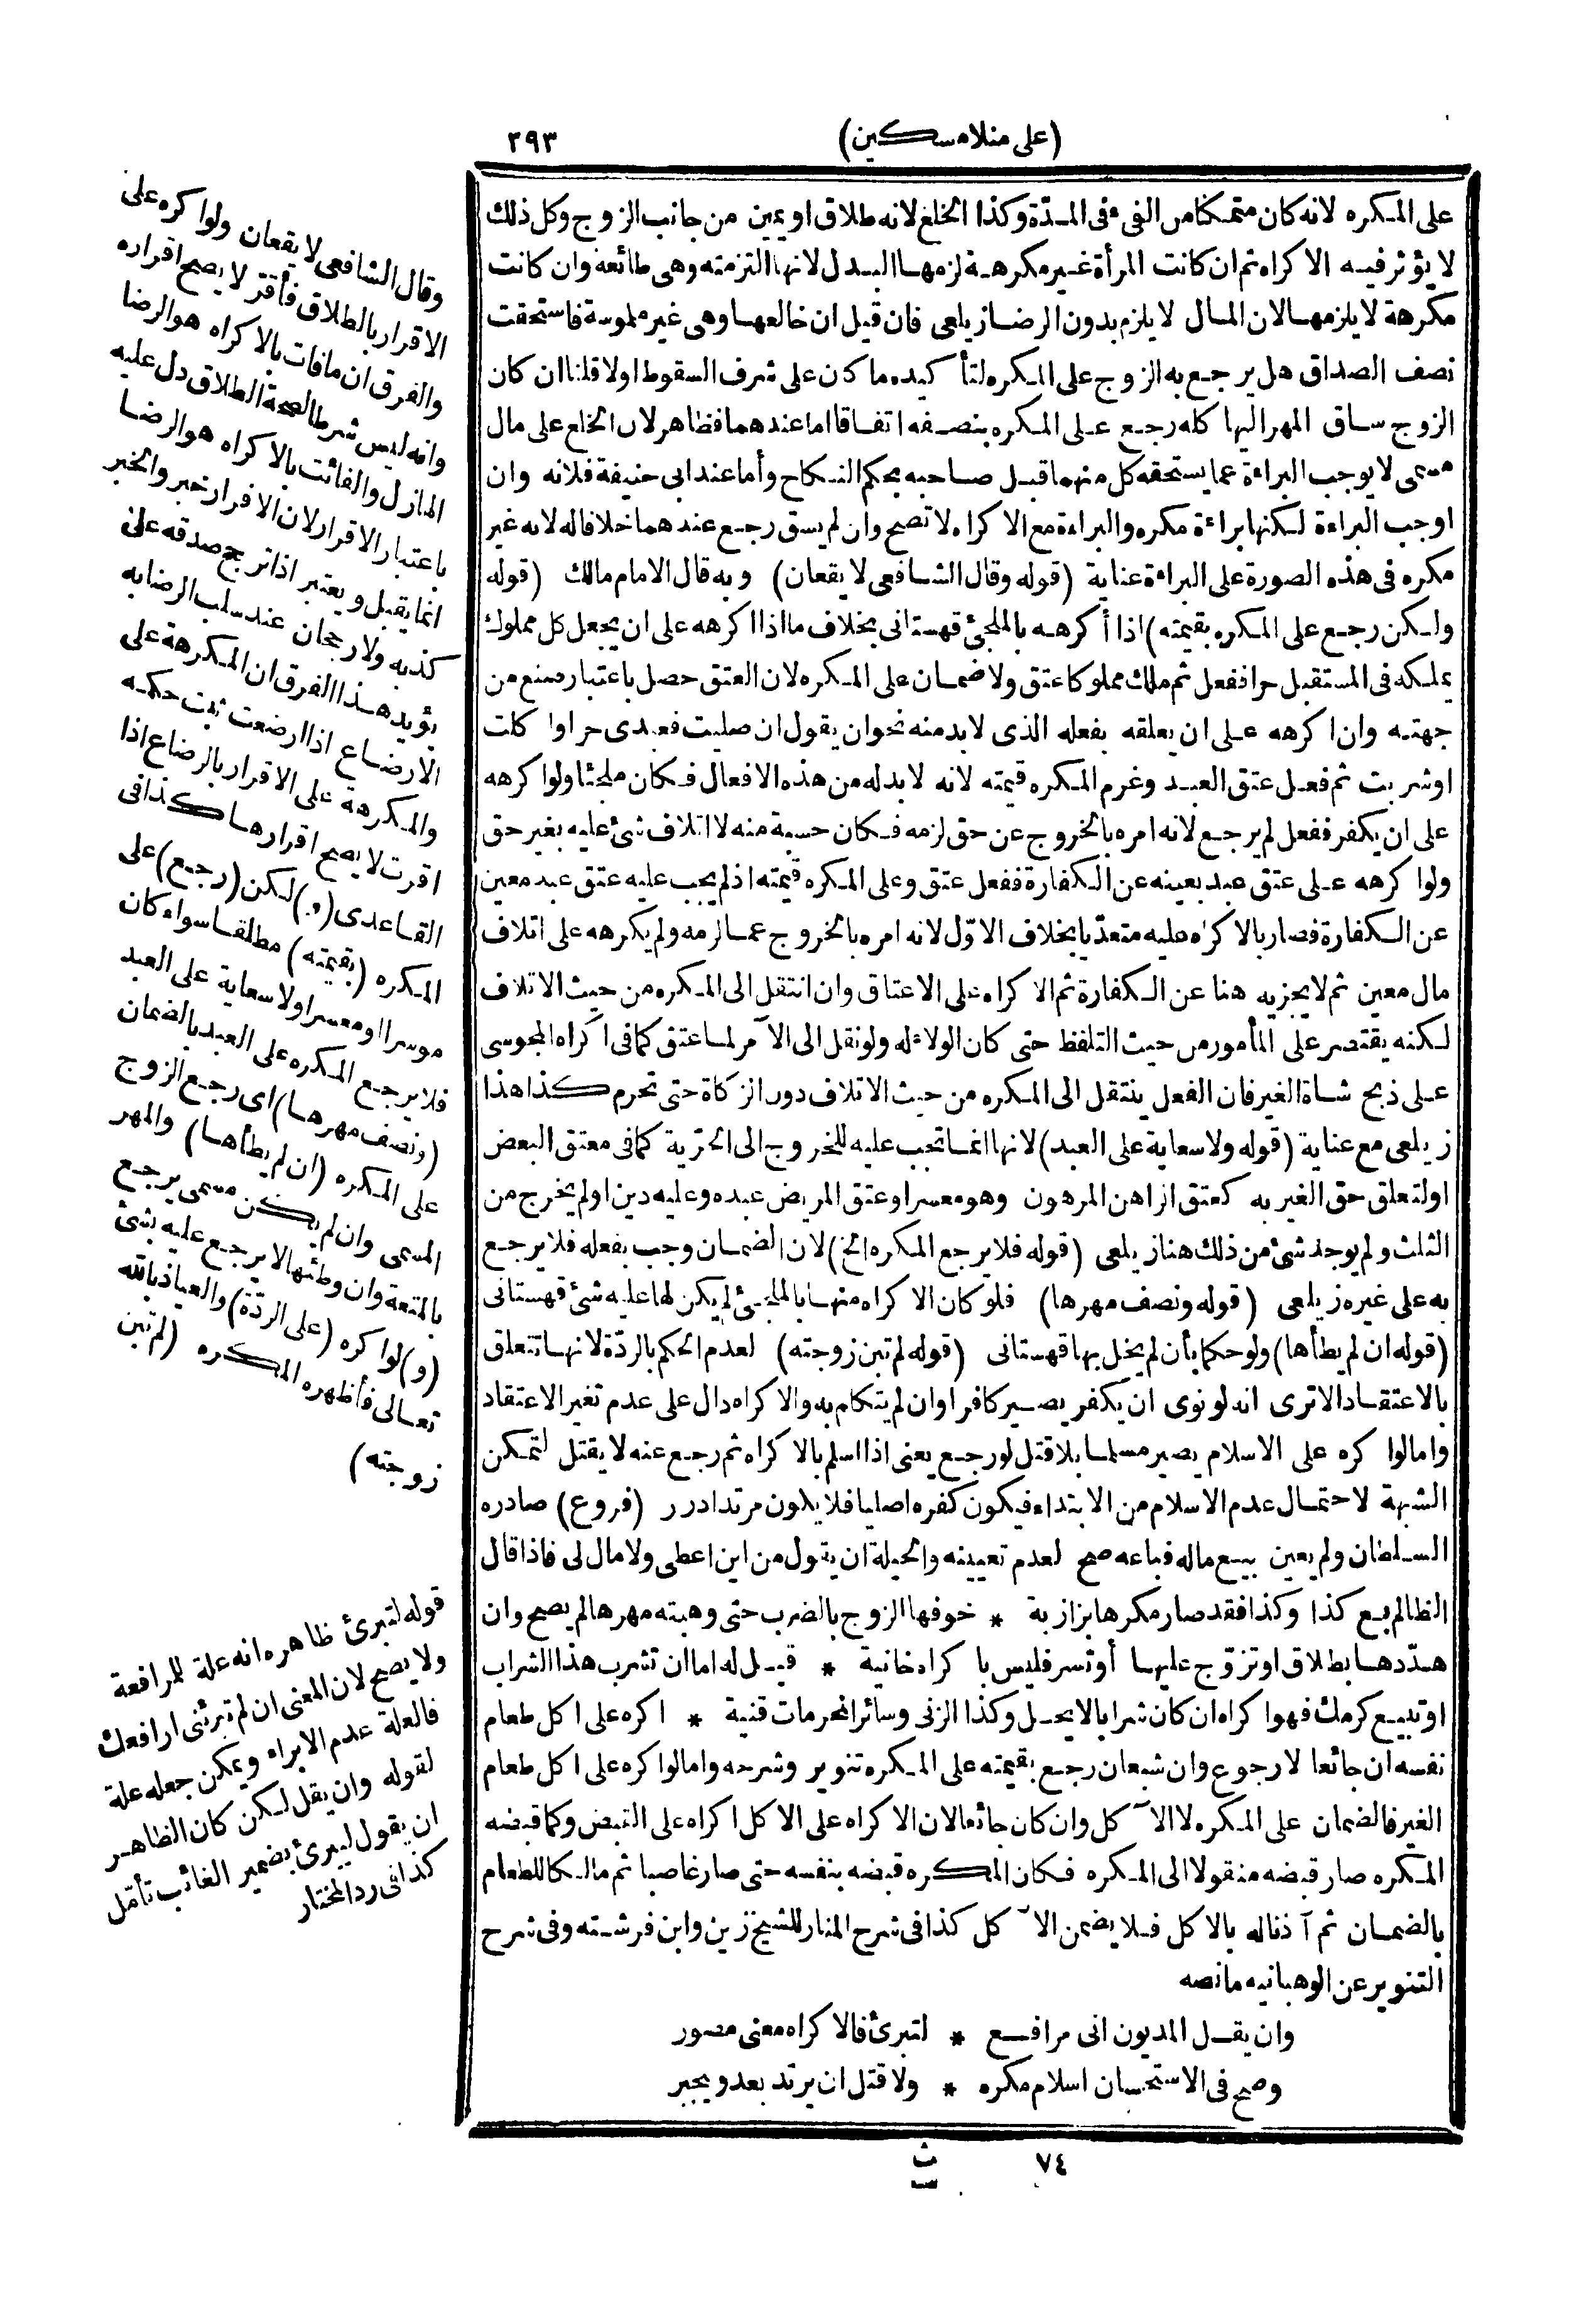 (على منلا مسكين)
٢٩٣
على المكره لانه كان متمكنا من الفىء فى المدّة وكذا الخلع لانه طلاق او يمين من جانب الزوج وكل ذلك
لا يؤثر فيه الاكراه ثم ان كانت المرأة غير مكرهة لزمها البدل لانها التزمته وهى طائعة وان كانت
مكرهة لا يلزمها لان المال لا يلزم بدون الرضا زيلعى فان قيل ان خالعها وهى غير ملموسة فاستحقت
نصف الصداق هل يرجع به الزوج على المكره لتأكيده ما كان على شرف السقوط اولا قلنا ان كان
الزوج ساق المهر اليها كله رجع على المكره بنصفه اتفاقا اما عندهما فظاهر لان الخلع على مال
مسمى لا يوجب البراءة عما يستحقه كل منهما قبل صاحبه بحكم النكاح وأما عند ابى حنيفة فلانه وان
اوجب البراءة لكنها براءة مكره والبراءة مع الاكراه لا تصح وان لم يسق رجع عندهما خلافا له لانه غير
مكره فى هذه الصورة على البراءة عناية (قوله وقال الشافعى لا يقعان) وبه قال الامام مالك (قوله
ولكن رجع على المكره بقيمته) اذا أكرهه بالملجئ قهستانى بخلاف ما اذا اكرهه على ان يجعل كل مملوك
يملكه فى المستقبل حرا ففعل ثم ملك مملوكا عتق ولا ضمان على المكره لان العتق حصل باعتبار صنع من
جهته وان اكرهه على ان يعلقه بفعله الذى لا بد منه نحو ان يقول ان صليت فعبدى حر او اكلت
او شربت ثم فعل عتق العبد وغرم المكره قيمته لانه لا بد له من هذه الافعال فكان ملجئا ولو اكرهه
على ان يكفر ففعل لم يرجع لانه امره بالخروج عن حق لزمه فكان حسبة منه لا اتلاف شئ عليه بغير حق
ولو اكرهه على عتق عبد بعينه عن الكفارة ففعل عتق وعلى المكره قيمته اذ لم يجب عليه عتق عبد معين
عن الكفارة فصار بالاكراه عليه متعدّيا بخلاف الاوّل لانه امره بالخروج عما لزمه ولم يكرهه على اتلاف
مال معين ثم لا يجزيه هنا عن الكفارة ثم الاكراه على الاعتاق وان انتقل الى المكره من حيث الاتلاف
لكنه يقتصر على المأمور من حيث التلفظ حتى كان الولاء له ولو نقل الى الآمر لما عتق كما فى اكراه المجوسى
على ذبح شاة الغير فان الفعل ينتقل الى المكره من حيث الاتلاف دون الزكاة حتى تحرم كذا هذا
زيلعى مع عناية (قوله ولا سعاية على العبد) لانها انما تجب عليه للخروج الى الحرّية كما فى معتق البعض
او لتعلق حق الغير به كعتق الراهن المرهون وهو معسر او عتق المريض عبده وعليه دين او لم يخرج من
الثلث ولم يوجد شئ من ذلك هنا زيلعى (قوله فلا يرجع المكره الخ) لان الضمان وجب بفعله فلا يرجع
به على غيره زيلعى (قوله ونصف مهرها) فلو كان الاكراه منها بالملجئ لم يكن لها عليه شئ قهستانى
(قوله ان لم يطأها) ولو حكما بأن لم يخل بها قهستانى (قوله لم تبن زوجته) لعدم الحكم بالردّة لانها تتعلق
بالاعتقاد الا ترى انه لو نوى ان يكفر يصير كافرا وان لم يتكلم به والاكراه دال على عدم تغير الاعتقاد
واما لو اكره على الاسلام يصير مسلما بلا قتل لو رجع يعنى اذا اسلم بالاكراه ثم رجع عنه لا يقتل لتمكن
الشبهة لاحتمال عدم الاسلام من الابتداء فيكون كفره اصليا فلا يكون مرتدا درر (فروع) صادره
السلطان ولم يعين بيع ماله فباعه صح لعدم تعيينه والحيلة ان يقول من اين اعطى ولا مال لى فاذا قال
الظالم بع كذا وكذا فقد صار مكرها بزازية * خوفها الزوج بالضرب حتى وهبته مهرها لم يصح وان
هدّدها بطلاق او تزوّج عليها أو تسر فليس باكراه خانية * قيل له اما ان تشرب هذا الشراب
او تبيع كرمك فهو اكراه ان كان شرابا لا يحل وكذا الزنى وسائر المحرمات قنية * اكره على اكل طعام
نفسه ان جائعا لا رجوع وان شبعان رجع بقيمته على المكره تنوير وشرحه واما لو اكره على اكل طعام
الغير فالضمان على المكره لا الآكل وان كان جائعا لان الاكراه على الاكل اكراه على القبض وكما قبضه
المكره صار قبضه منقولا الى المكره فكان المكره قبضه بنفسه حتى صار غاصبا ثم مالكا للطعام
بالضمان ثم آذنا له بالاكل فلا يضمن الآكل كذا فى شرح المنار للشيخ زين وابن فرشته وفى شرح
التنوير عن الوهبانيه ما نصه
وان يقل المديون انى مرافع * لتبرئ فالاكراه معنى مصور
وصح فى الاستحسان اسلام مكره * ولا قتل ان يرتد بعد ويجبر
٧٤
ث
وقال الشافعى لا يقعان ولو اكره على
الاقرار بالطلاق فأقرّ لا يصح اقراره
والفرق ان ما فات بالاكراه هو الرضا
وانه ليس شرطا لصحة الطلاق دل عليه
الهازل والفائت بالاكراه هو الرضا
باعتبار الاقرار لان الاقرار خبر والخبر
انما يقبل ويعتبر اذا ترجح صدقه على
كذبه ولا رجحان عند سلب الرضا به
يؤيد هذا الفرق ان المكرهة على
الارضاع اذا ارضعت ثبت حكمه
والمكرهة على الاقرار بالرضاع اذا
اقرت لا يصح اقرارها كذا فى
القاعدى (و) لكن (رجع) على
المكره (بقيمته) مطلقا سواء كان
موسرا او معسرا ولا سعاية على العبد
فلا يرجع المكره على العبد بالضمان
(ونصف مهرها) اى رجع الزوج
على المكره (ان لم يطأها) والمهر
المسمى وان لم يكن مسمى يرجع
بالمتعة وان وطئها لا يرجع عليه بشئ
(و) لو اكره (على الردّة) والعياذ بالله
تعالى فأظهره المكره (لم تبن
زوجته)
قوله لتبرئ ظاهره انه علة للمرافعة
ولا يصح لان المعنى ان لم تبرئنى ارافعك
فالعلة عدم الابراء ويمكن جعله علة
لقوله وان يقل لكن كان الظاهر
ان يقول ليبرئ بضمير الغائب تأمّل
كذا فى رد المختار